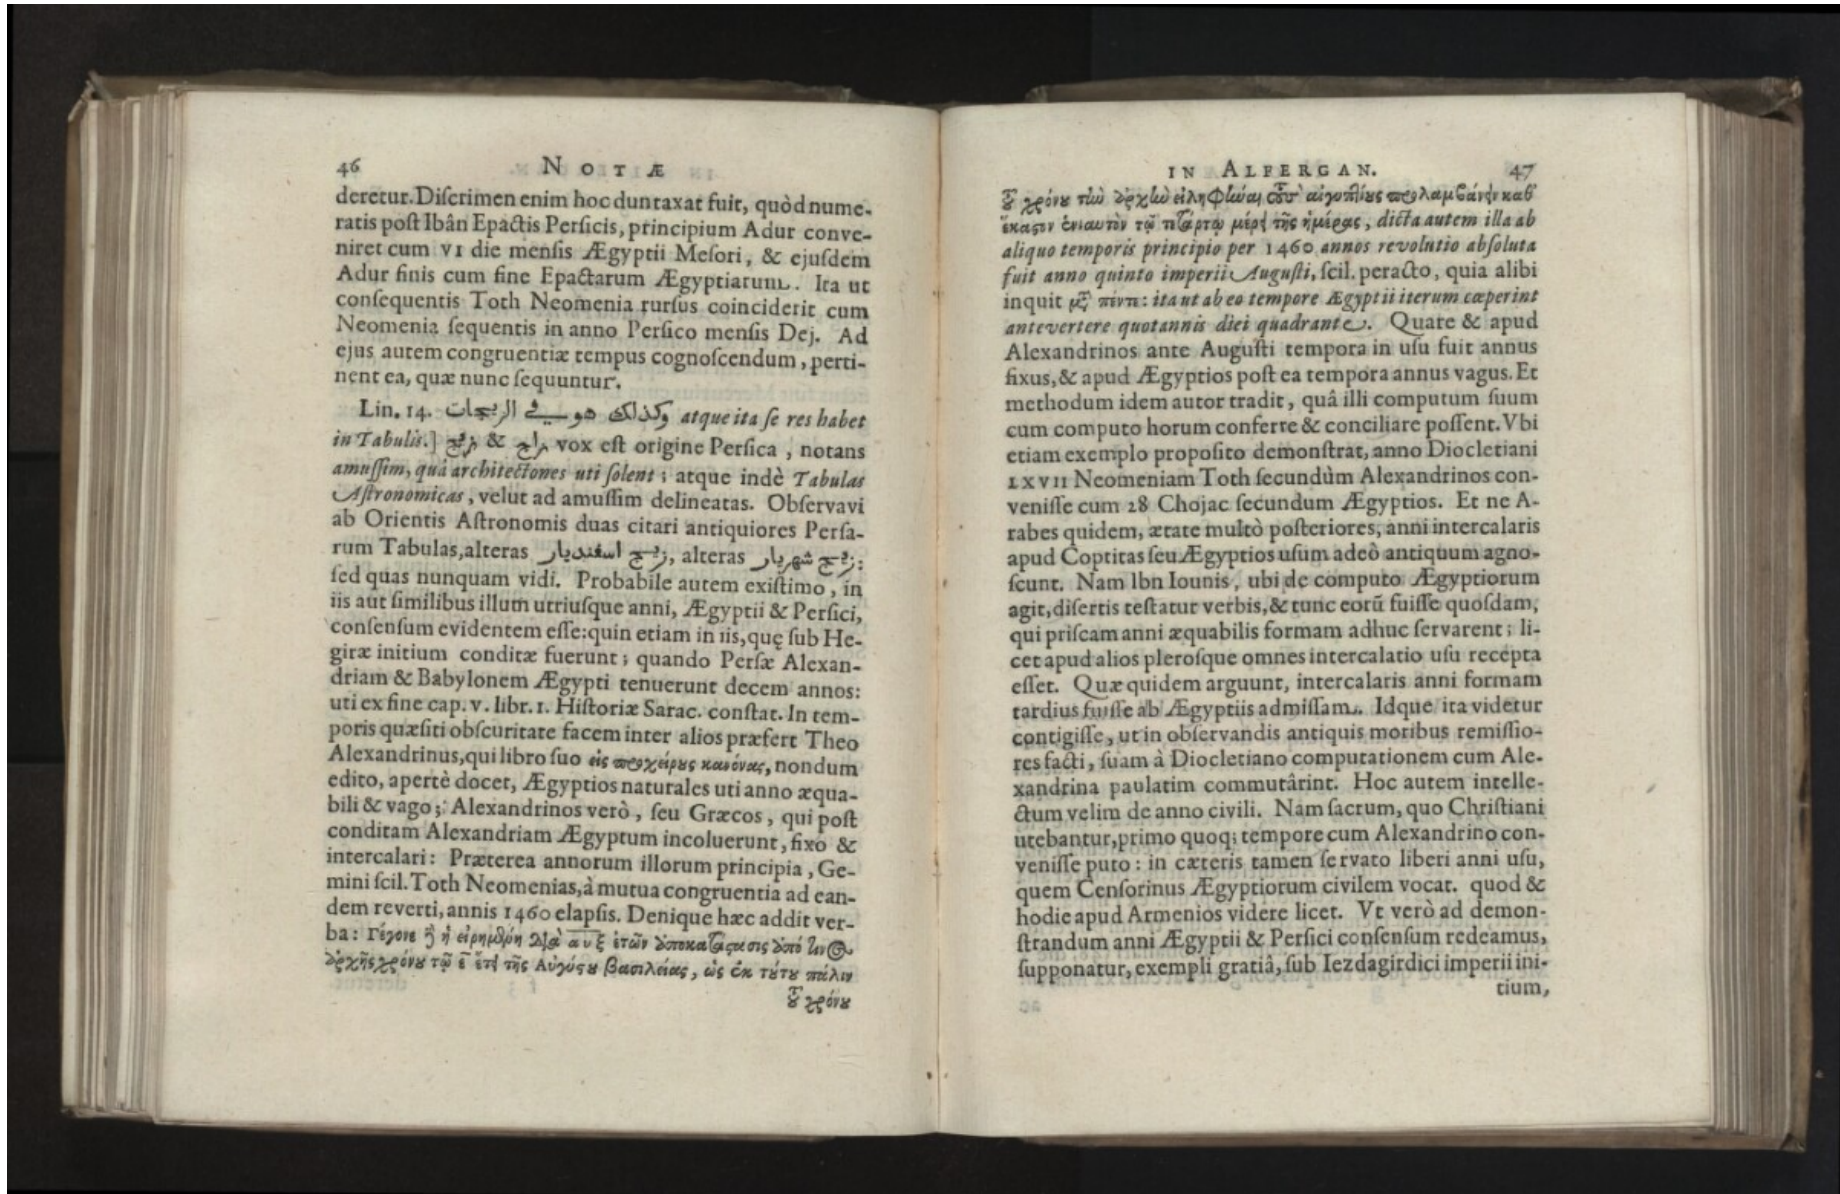 46 NOTÆ
deretur. Discrimen enim hoc duntaxat fuit, quòd nume-
ratis post Ibân Epactis Persicis, principium Adur conve-
niret cum VI die mensis Ægyptii Mesori, & ejusdem
Adur finis cum fine Epactarum Ægyptiarum. Ita ut
consequentis Toth Neomenia rursus coinciderit cum
Neomenia sequentis in anno Persico mensis Dej. Ad
ejus autem congruentiæ tempus cognoscendum, perti-
nent ea, quæ nunc sequuntur.
Lin. 14. وكذلك هو في الزيجات atque ita se res habet
in Tabulis.] زيج & زاج vox est origine Persica, notans
amussim, quâ architectones uti solent; atque indè Tabulas
Astronomicas, velut ad amussim delineatas. Observavi
ab Orientis Astronomis duas citari antiquiores Persa-
rum Tabulas, alteras زيج اسفنديار, alteras زيج شهريار:
sed quas nunquam vidi. Probabile autem existimo, in
iis aut similibus illum utriusque anni, Ægyptii & Persici,
consensum evidentem esse: quin etiam in iis, quę sub He-
giræ initium conditæ fuerunt; quando Persæ Alexan-
driam & Babylonem Ægypti tenuerunt decem annos:
uti ex fine cap. v. libr. 1. Historiæ Sarac. constat. In tem-
poris quæsiti obscuritate facem inter alios præfert Theo
Alexandrinus, qui libro suo εἰς προχείρους κανόνας, nondum
edito, apertè docet, Ægyptios naturales uti anno æqua-
bili & vago; Alexandrinos verò, seu Græcos, qui post
conditam Alexandriam Ægyptum incoluerunt, fixo &
intercalari: Præterea annorum illorum principia, Ge-
mini scil. Toth Neomenias, à mutua congruentia ad ean-
dem reverti, annis 1460 elapsis. Denique hæc addit ver-
ba: Γέγονε δὲ ἡ εἰρημένη διὰ αυξ ἐτῶν ἀποκατάστασις ἀπό τινος
ἀρχῆς χρόνου τῷ ε ἔτει τῆς Αὐγούστου βασιλείας, ὡς ἐκ τούτου πάλιν
τοῦ χρόνου
IN ALFERGAN. 47
τοῦ χρόνου τὴν ἀρχὴν εἰληφέναι τοὺς αἰγυπτίους προλαμβάνειν καθ'
ἕκαστον ἐνιαυτὸν τῷ τετάρτῳ μέρει τῆς ἡμέρας, dicta autem illa ab
aliquo temporis principio per 1460 annos revolutio absoluta
fuit anno quinto imperii Augusti, scil. peracto, quia alibi
inquit μετὰ πέντε: ita ut ab eo tempore Ægyptii iterum cœperint
antevertere quotannis diei quadrante. Quare & apud
Alexandrinos ante Augusti tempora in usu fuit annus
fixus, & apud Ægyptios post ea tempora annus vagus. Et
methodum idem autor tradit, quâ illi computum suum
cum computo horum conferre & conciliare possent. Vbi
etiam exemplo proposito demonstrat, anno Diocletiani
LXVII Neomeniam Toth secundùm Alexandrinos con-
venisse cum 28 Chojac secundum Ægyptios. Et ne A-
rabes quidem, ætate multò posteriores, anni intercalaris
apud Coptitas seu Ægyptios usum adeò antiquum agno-
scunt. Nam Ibn Iounis, ubi de computo Ægyptiorum
agit, disertis testatur verbis, & tunc eorū fuisse quosdam,
qui priscam anni æquabilis formam adhuc servarent; li-
cet apud alios plerosque omnes intercalatio usu recepta
esset. Quæ quidem arguunt, intercalaris anni formam
tardius fuisse ab Ægyptiis admissam. Idque ita videtur
contigisse, ut in observandis antiquis moribus remissio-
res facti, suam à Diocletiano computationem cum Ale-
xandrina paulatim commutârint. Hoc autem intelle-
ctum velim de anno civili. Nam sacrum, quo Christiani
utebantur, primo quoq; tempore cum Alexandrino con-
venisse puto: in cæteris tamen servato liberi anni usu,
quem Censorinus Ægyptiorum civilem vocat. quod &
hodie apud Armenios videre licet. Vt verò ad demon-
strandum anni Ægyptii & Persici consensum redeamus,
supponatur, exempli gratiâ, sub Iezdagirdici imperii ini-
tium,